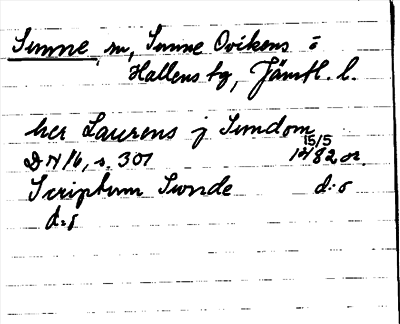 Sunne, m, Sunne Ovikens o
Hallens tg, Jämtl. l.
her Laurens j Sundom
15/5
DN 16, s. 301 1482 or.
Scriptum Sunde d:o
d:o